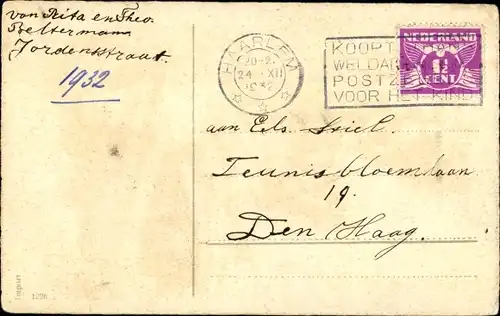 van Rita en Theo
Beltermann
Jordensstraat
1932
HAARLEM
24 XII
1932
KOOPT
WELDADIG
POSTZ
VOOR HET KIND
NEDERLAND
1½
CENT
aan Eds. Sriel.
Teunisbloemlaan
19.
Den Haag.
Import
1226